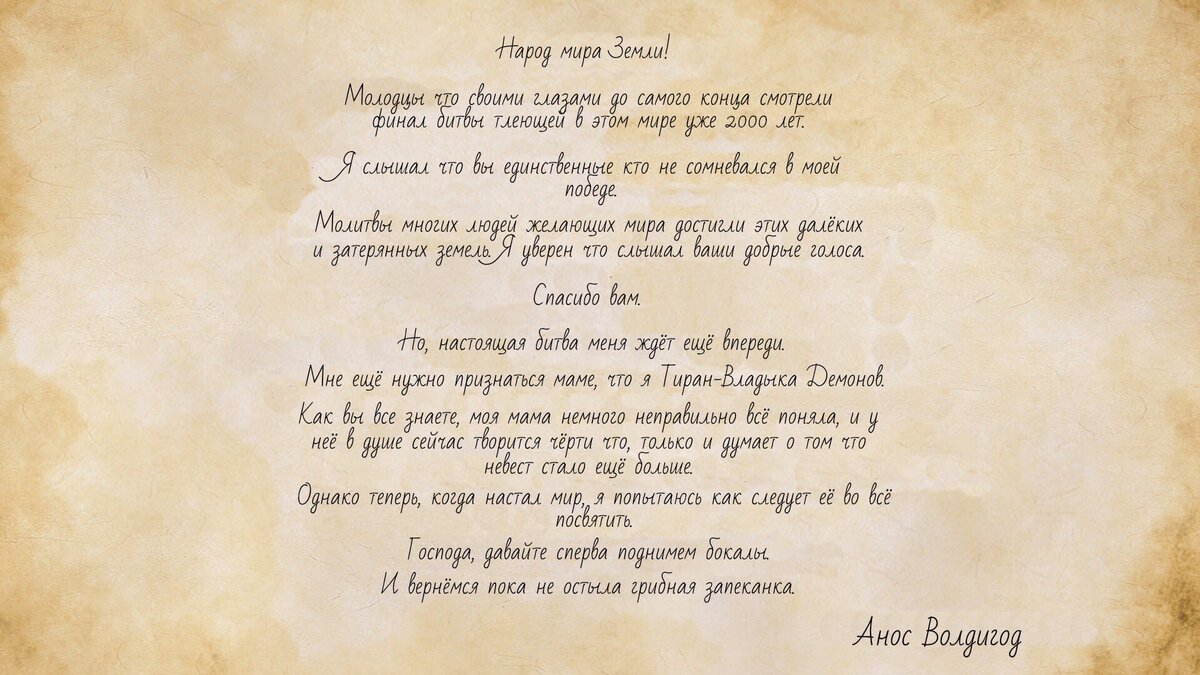 Народ мира Земли!
Молодцы что своими глазами до самого конца смотрели
финал битвы тлеющей в этом мире уже 2000 лет.
Я слышал что вы единственные кто не сомневался в моей
победе.
Молитвы многих людей желающих мира достигли этих далёких
и затерянных земель. Я уверен что слышал ваши добрые голоса.
Спасибо вам.
Но, настоящая битва меня ждёт ещё впереди.
Мне ещё нужно признаться маме, что я Тиран-Владыка Демонов.
Как вы все знаете, моя мама немного неправильно всё поняла, и у
неё в душе сейчас творится чёрти что, только и думает о том что
невест стало ещё больше.
Однако теперь, когда настал мир, я попытаюсь как следует её во всё
посвятить.
Господа, давайте сперва поднимем бокалы.
И вернёмся пока не остыла грибная запеканка.
Анос Волдигод